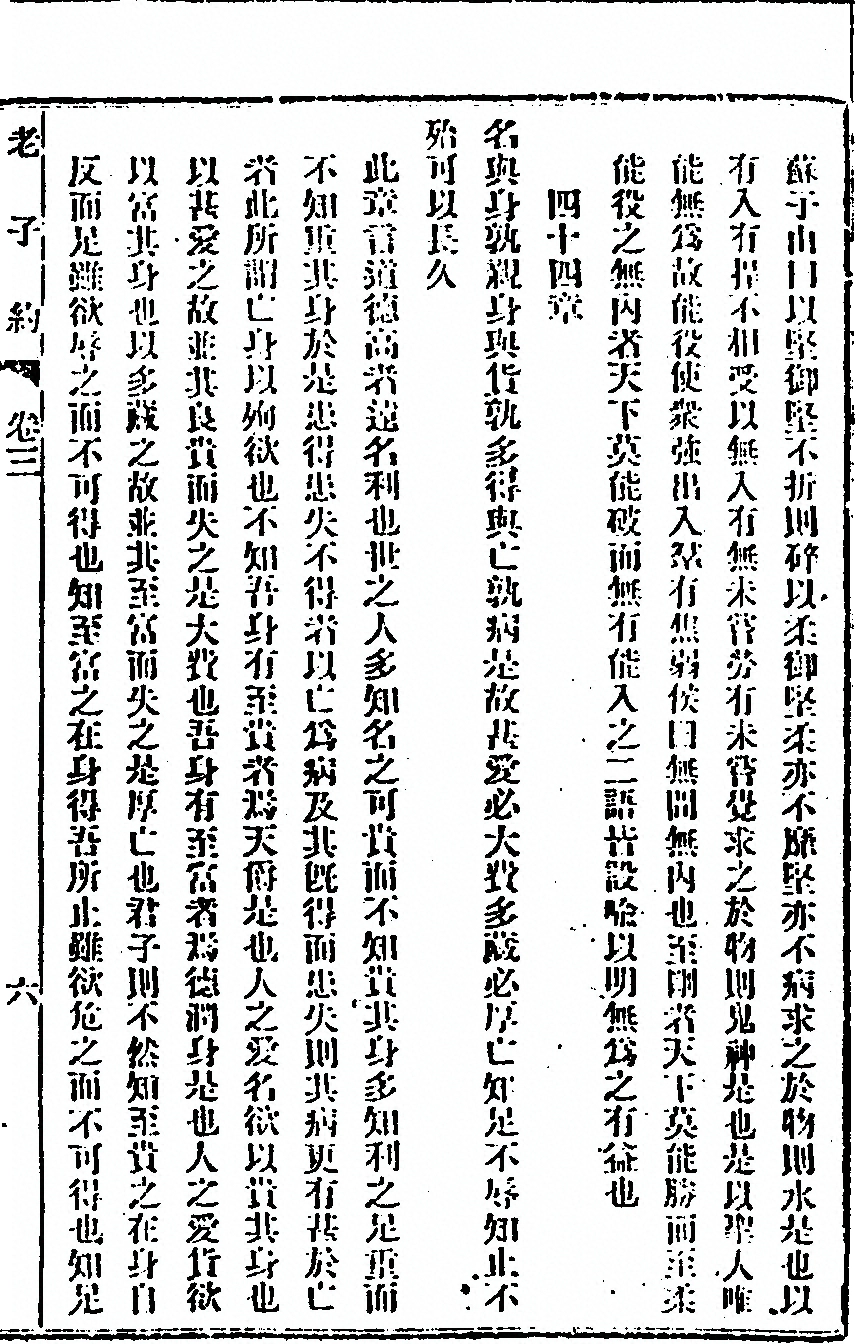 蘇子由曰以堅御堅不折則碎以柔御堅柔亦不靡堅亦不病求之於物則水是也以
有入有捍不相受以無入有無未嘗勞有未嘗覺求之於物則鬼神是也是以聖人唯
能無爲故能役使衆強出入羣有焦弱侯曰無間無內也至剛者天下莫能勝而至柔
能役之無內者天下莫能破而無有能入之二語皆設喻以明無爲之有益也
四十四章
名與身孰親身與貨孰多得與亡孰病是故甚愛必大費多藏必厚亡知足不辱知止不
殆可以長久
此章言道德高者遠名利也世之人多知名之可貴而不知貴其身多知利之足重而
不知重其身於是患得患失不得者以亡爲病及其旣得而患失則其病更有甚於亡
者此所謂亡身以殉欲也不知吾身有至貴者焉天爵是也人之愛名欲以貴其身也
以甚愛之故並其良貴而失之是大費也吾身有至富者焉德潤身是也人之愛貨欲
以富其身也以多藏之故並其至富而失之是厚亡也君子則不然知至貴之在身自
反而足雖欲辱之而不可得也知至富之在身得吾所止雖欲危之而不可得也知足
老子約 卷三 六